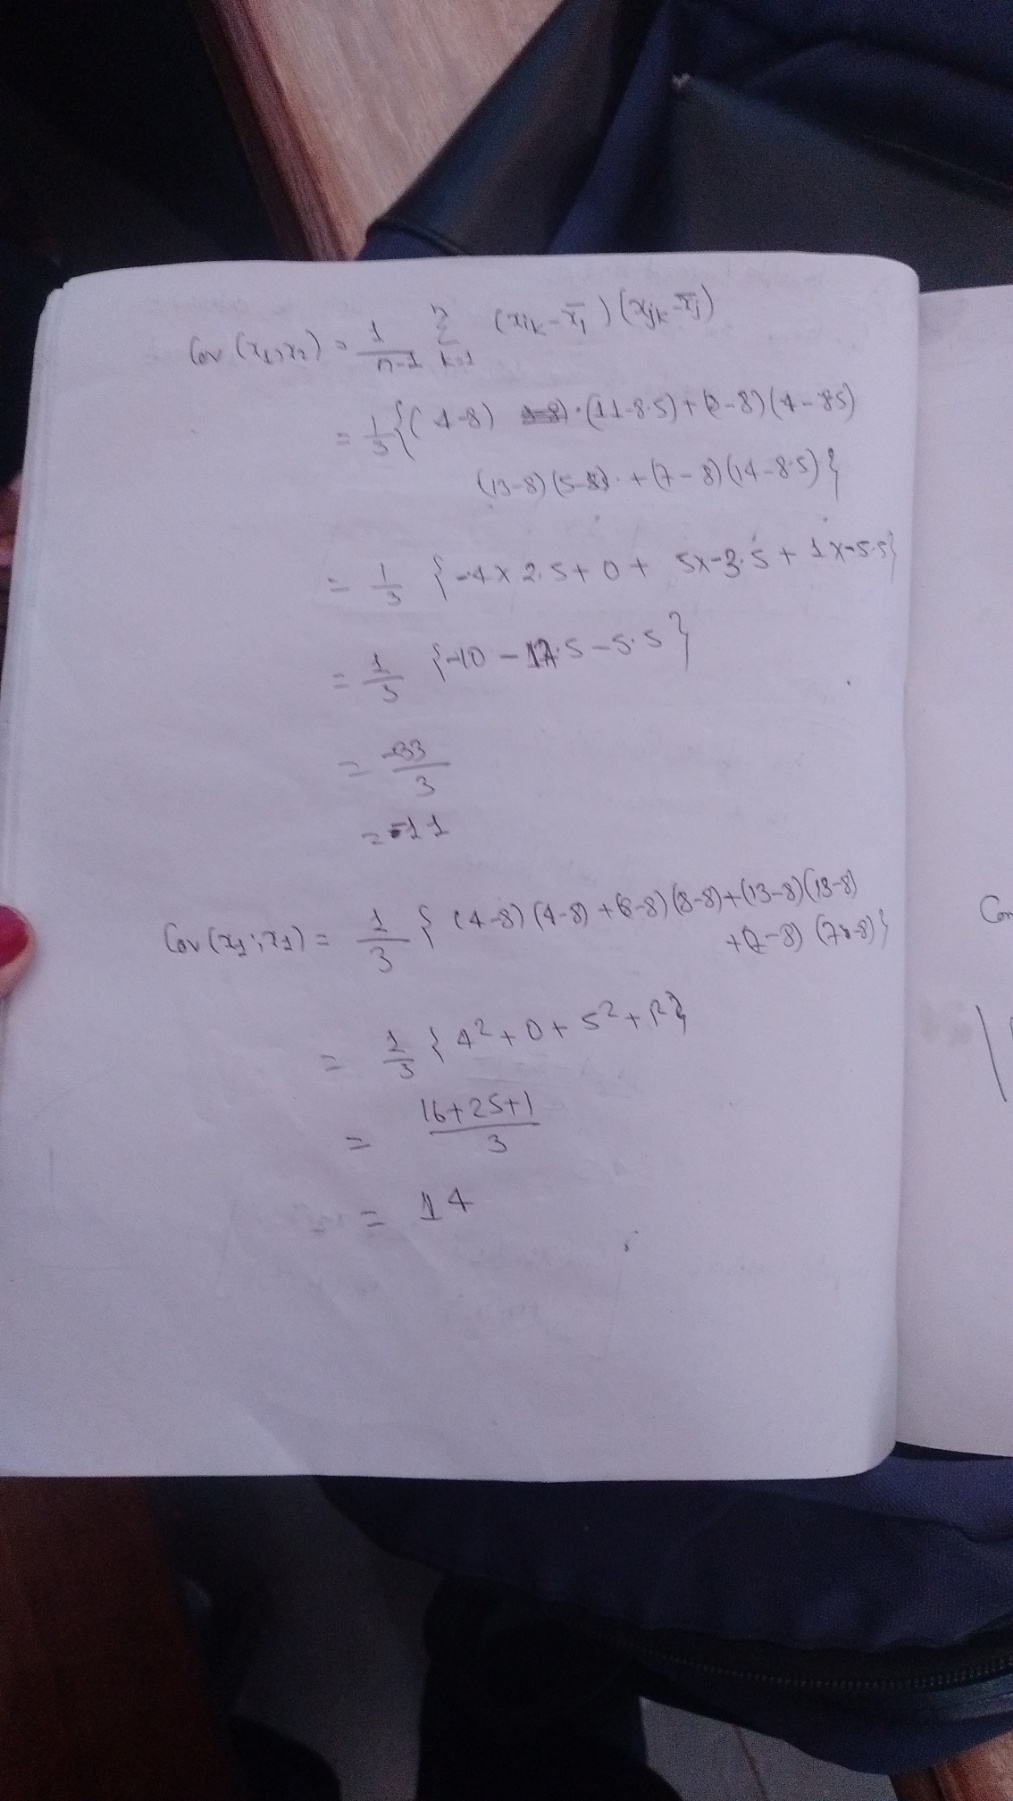 Cov (x₁,x₂) = 1/(n-1) Σ_{k=1}^{n} (x_{ik} - x̄_i) (x_{jk} - x̄_j)
= 1/3 { (4-8) · (11-8.5) + (8-8) (4-8.5)
(13-8) (5-8.5) + (7-8) (14-8.5) }
= 1/3 { -4 × 2.5 + 0 + 5x-3.5 + 1x-5.5 }
= 1/3 { -10 - 17.5 - 5.5 }
= -33/3
= -11
Cov (x₁, x₁) = 1/3 { (4-8) (4-8) + (8-8) (8-8) + (13-8) (13-8)
+ (7-8) (7-8) }
= 1/3 { 4² + 0 + 5² + 1² }
= (16+25+1)/3
= 14